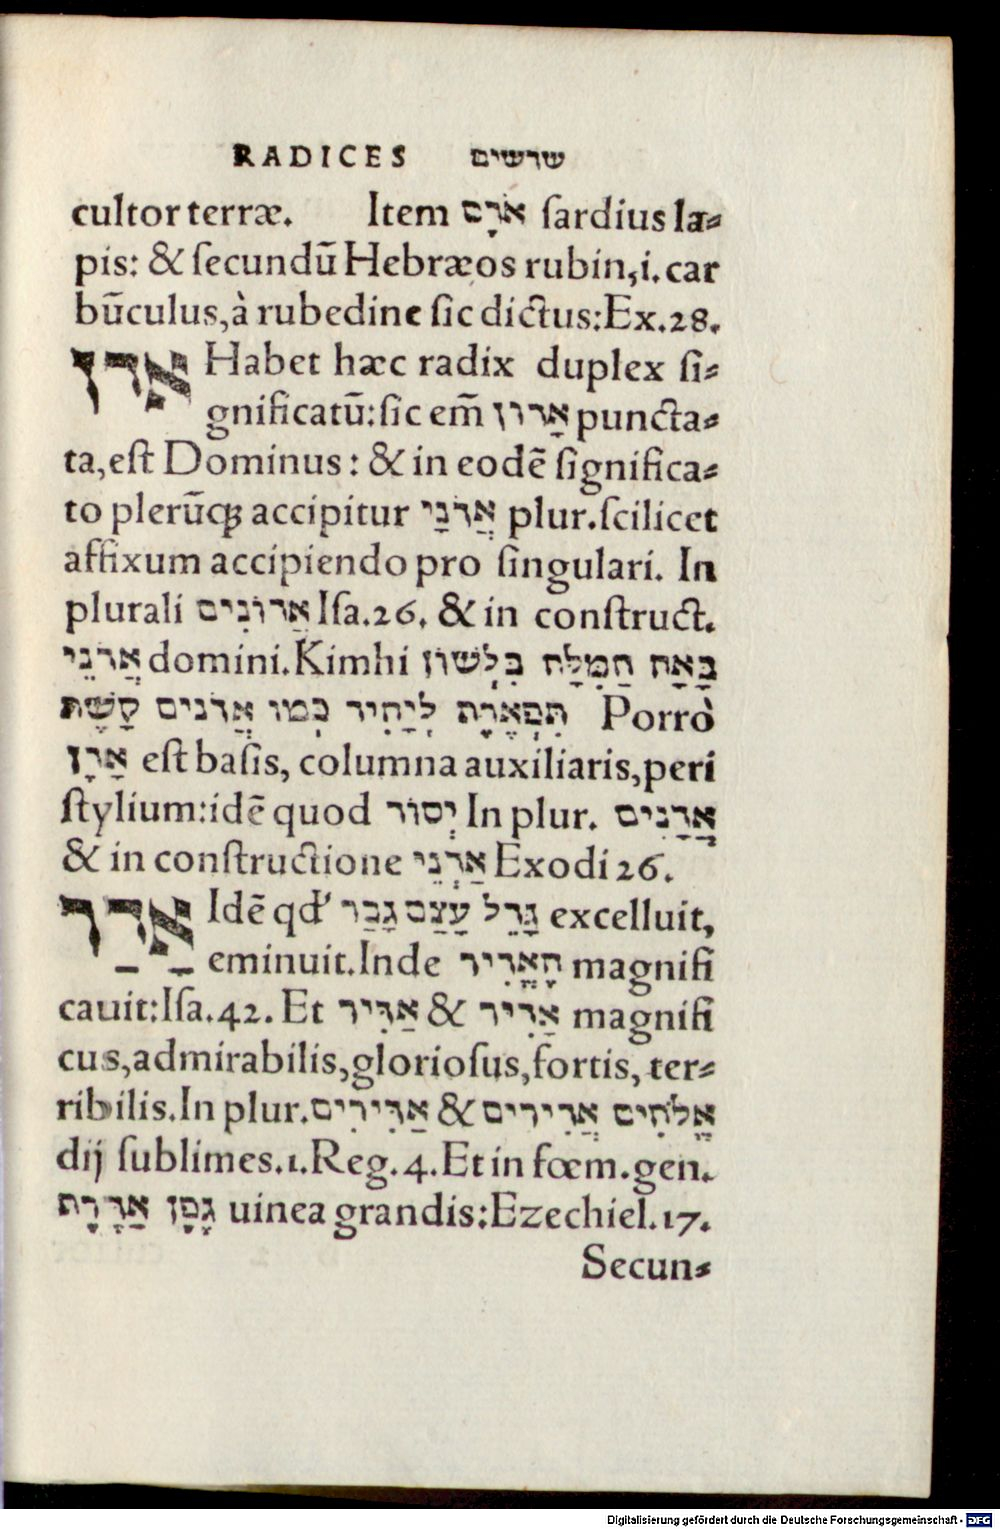 RADICES שרשים
cultor terræ. Item אֹדֶם ſardius la-
pis: & ſecundũ Hebræos rubin, i. car
bũculus, à rubedine ſic dictus: Ex. 28.
אדן Habet hæc radix duplex ſi-
gnificatũ: ſic em̃ אָדוֹן puncta-
ta, eſt Dominus: & in eodẽ ſignifica-
to plerũqꝫ accipitur אֲדֹנָי plur. ſcilicet
affixum accipiendo pro ſingulari. In
plurali אֲדוֹנִים Iſa. 26. & in conſtruct.
אֲדֹנֵי domini. Kimhi בָּאָה הַמִּלָּה בִּלְשׁוֹן
תִּפְאֶרֶת לְיָחִיד כְּמוֹ אֲדֹנִים קָשֶׁה Porrò
אֶדֶן eſt baſis, columna auxiliaris, peri
ſtylium: idẽ quod יְסוֹד In plur. אֲדָנִים
& in conſtructione אַדְנֵי Exodi 26.
אדר Idẽ qd' גָּדֵל עָצַם גָּבַר excelluit,
eminuit. Inde הֶאֱדִיר magnifi
cauit: Iſa. 42. Et אַדִּיר & אַדִיר magnifi
cus, admirabilis, glorioſus, fortis, ter-
ribilis. In plur. אַדִּירִים & אֱלֹהִים אֲדִירִים
dij ſublimes. 1. Reg. 4. Et in fœm. gen.
גֶּפֶן אַדֶּרֶת uinea grandis: Ezechiel. 17.
Secun-
Digitalisierung gefördert durch die Deutsche Forschungsgemeinschaft - DFG